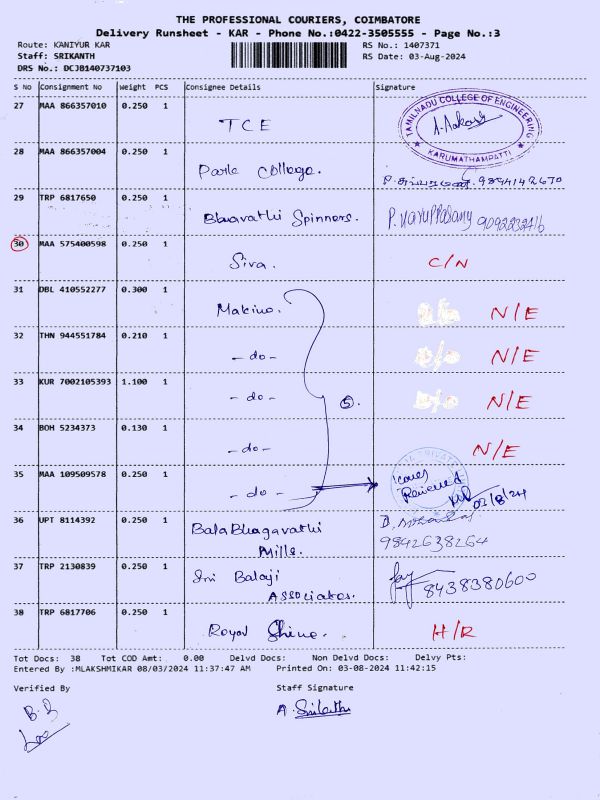 THE PROFESSIONAL COURIERS, COIMBATORE
Delivery Runsheet - KAR - Phone No.:0422-3505555 - Page No.:3
Route: KANIYUR KAR RS No.: 1407371
Staff: SRIKANTH RS Date: 03-Aug-2024
DRS No.: DCJB140737103
S No Consignment No Weight PCS Consignee Details Signature
27 MAA 866357010 0.250 1 TCE TAMILNADU COLLEGE OF ENGINEERING KARUMATHAMPATTI
28 MAA 866357004 0.250 1 Park College. 9894142670
29 TRP 6817650 0.250 1 Bhavathi Spinners. P. Karuppasamy 9092832416
30 MAA 575400598 0.250 1 Siva. C/N
31 DBL 410552277 0.300 1 Makino. N/E
32 THN 944551784 0.210 1 - do - N/E
33 KUR 7002105393 1.100 1 - do - 5. N/E
34 BOH 5234373 0.130 1 - do - N/E
35 MAA 109509578 0.250 1 - do - Received 03/8/24
36 UPT 8114392 0.250 1 Bala Bhagavathi Mills. 9842638264
37 TRP 2130839 0.250 1 Sri Balaji Associates. 8438380600
38 TRP 6817706 0.250 1 Royal Shine. H/R
Tot Docs: 38 Tot COD Amt: 0.00 Delvd Docs: Non Delvd Docs: Delvy Pts:
Entered By :MLAKSHMIKAR 08/03/2024 11:37:47 AM Printed On: 03-08-2024 11:42:15
Verified By Staff Signature
A. Srikanth